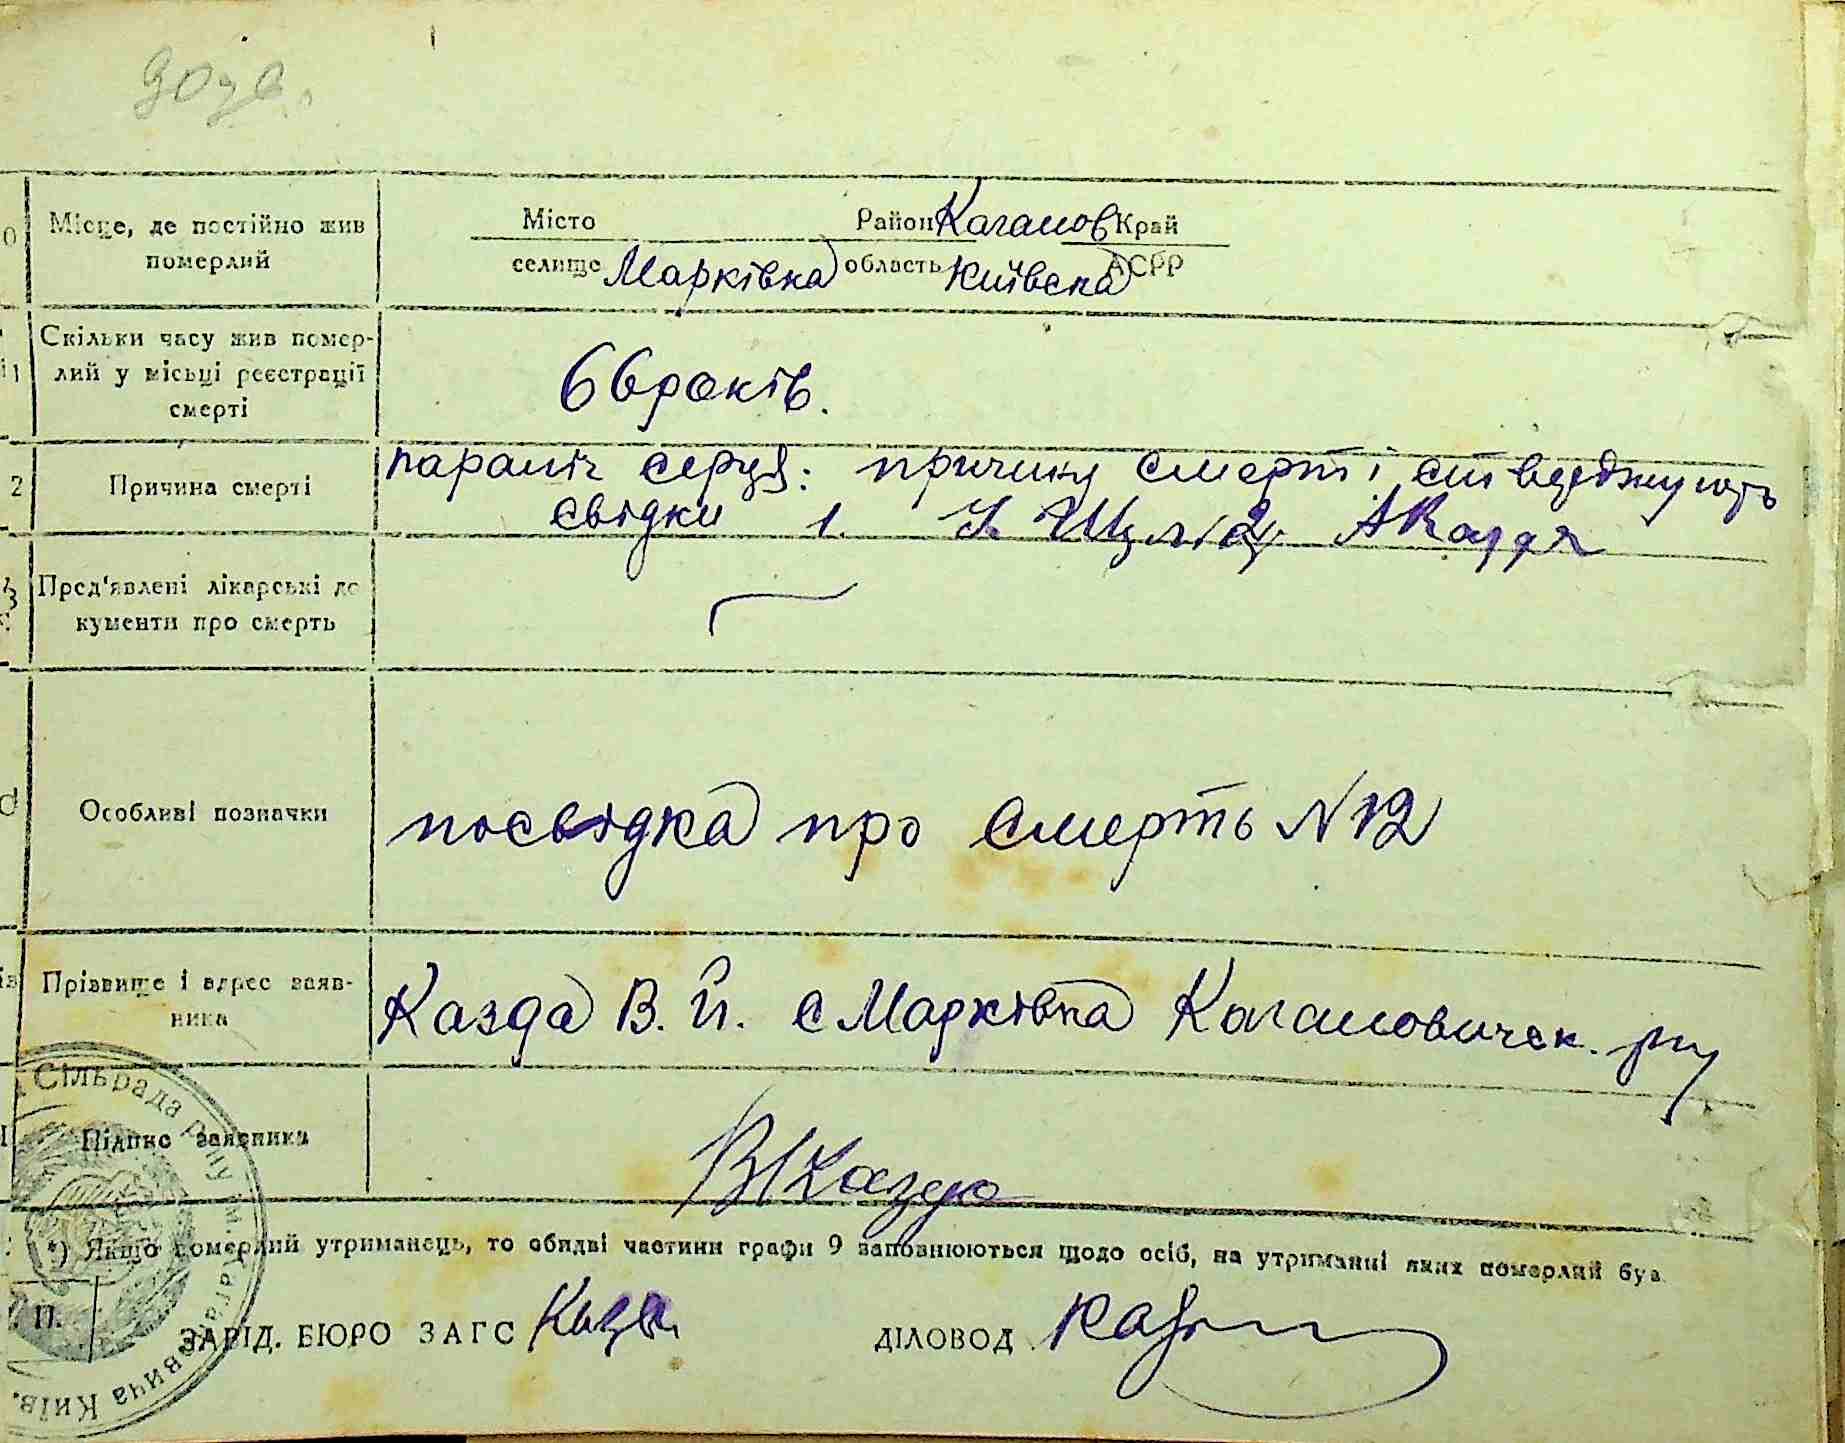 Місце, де постійно жив
померлий
Місто Район Каганов Край
селище Марківка область Київська АСРР
Скільки часу жив помер-
лий у місьці реєстрації
смерті
66 років.
2 Причина смерті
параліч серця: причину смерті стверджують
свідки 1. 2.
Пред'явлені лікарські до
кументи про смерть
Особливі позначки
посвідка про смерть N 12
Прізвище і адрес заяв-
ника
Казда В. Й. с Марківка Кагановическ. р-ну
Підпис заявника
ВКазда
*) Якщо померлий утриманець, то обидві частини графи 9 заповнюються щодо осіб, на утриманні яких померлий був
П.
ЗАВІД. БЮРО ЗАГС ДІЛОВОД
Сільрада р-ну ім. Кагановича Київ.